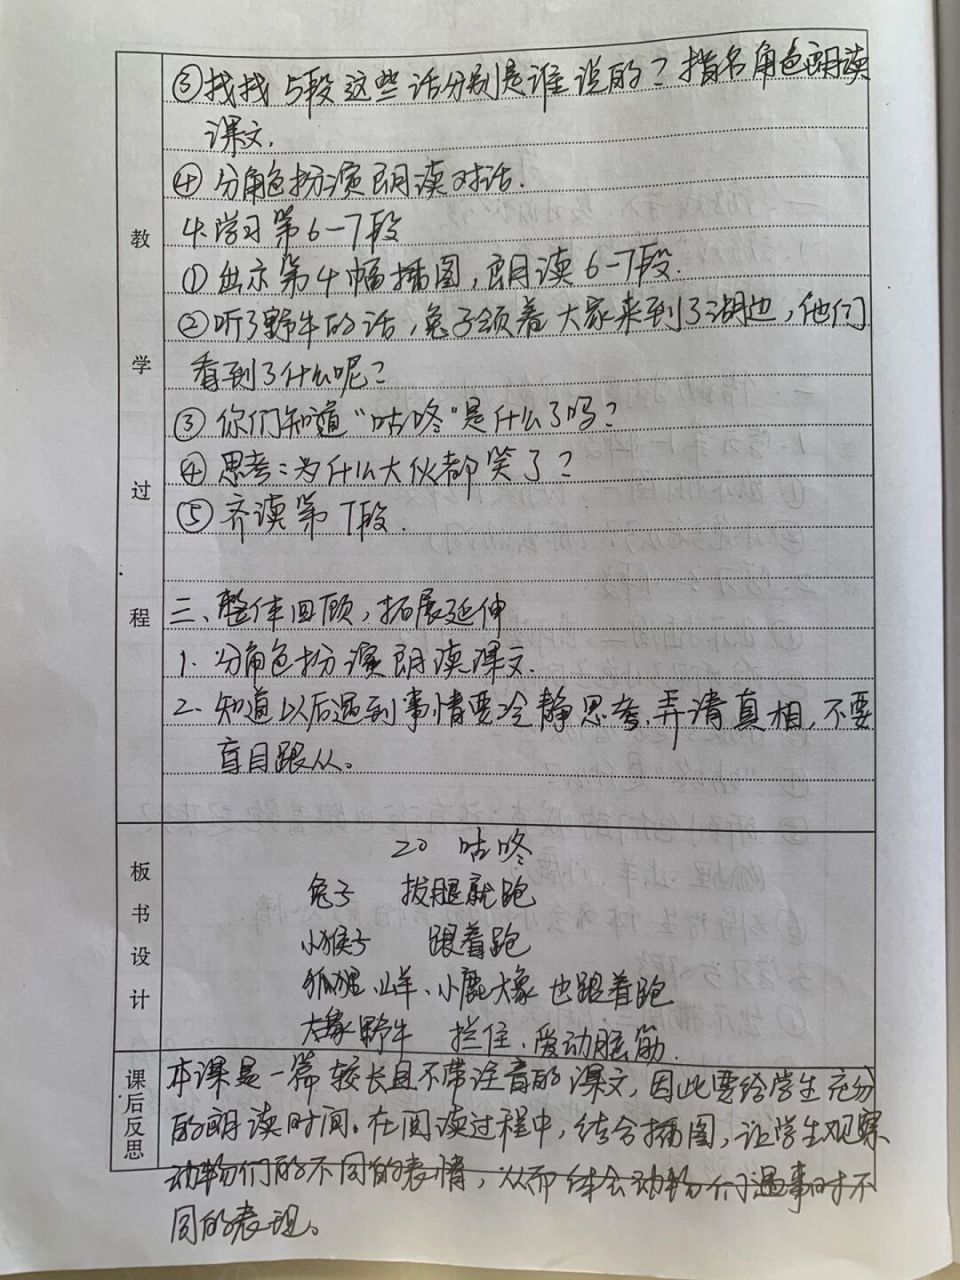 ③找找5段这些话分别是谁说的？指名角色朗读
课文.
④分角色扮演朗读对话.
4.学习第6-7段
①出示第4幅插图,朗读6-7段.
②听了野牛的话,兔子领着大家来到了湖边,他们
看到了什么呢?
③你们知道“咕咚”是什么了吗?
④思考:为什么大伙都笑了?
⑤齐读第7段.
三、整体回顾,拓展延伸
1.分角色扮演朗读课文.
2.知道以后遇到事情要冷静思考,弄清真相,不要
盲目跟从。
教学过程
板书设计
20 咕咚
兔子 拔腿就跑
小猴子 跟着跑
狐狸、山羊、小鹿大象 也跟着跑
大象野牛 拦住、爱动脑筋.
课后反思
本课是一篇较长且不带注音的课文,因此要给学生充分
的朗读时间。在阅读过程中,结合插图,让学生观察
动物们的不同的表情,从而体会动物们遇事时不
同的表现。